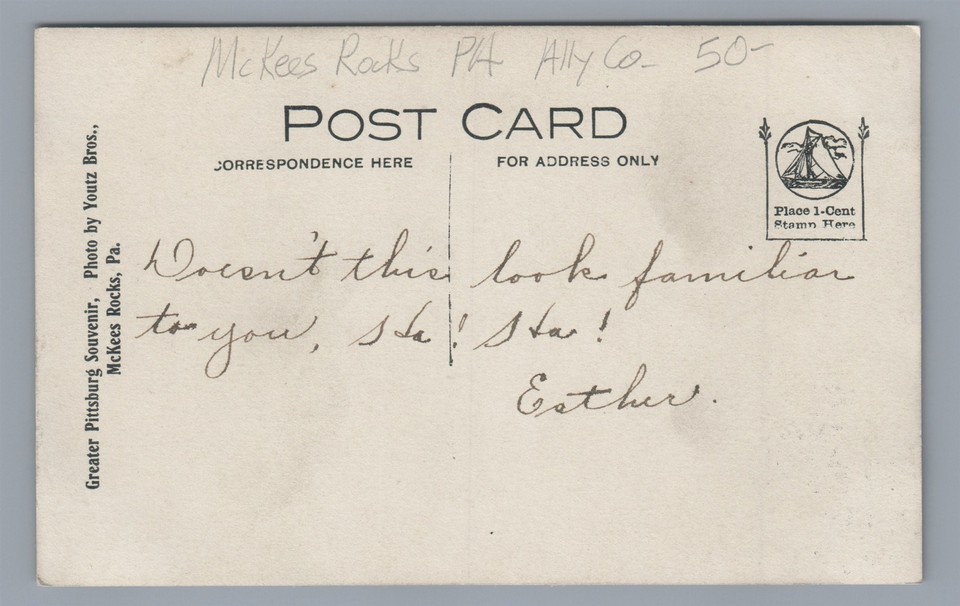 McKees Rocks PA Ally Co- 50-
POST CARD
CORRESPONDENCE HERE
FOR ADDRESS ONLY
Place 1-Cent
Stamp Here
Greater Pittsburg Souvenir, Photo by Youtz Bros.,
McKees Rocks, Pa.
Doesn't this look familiar
to you, Ha! Ha!
Esther.